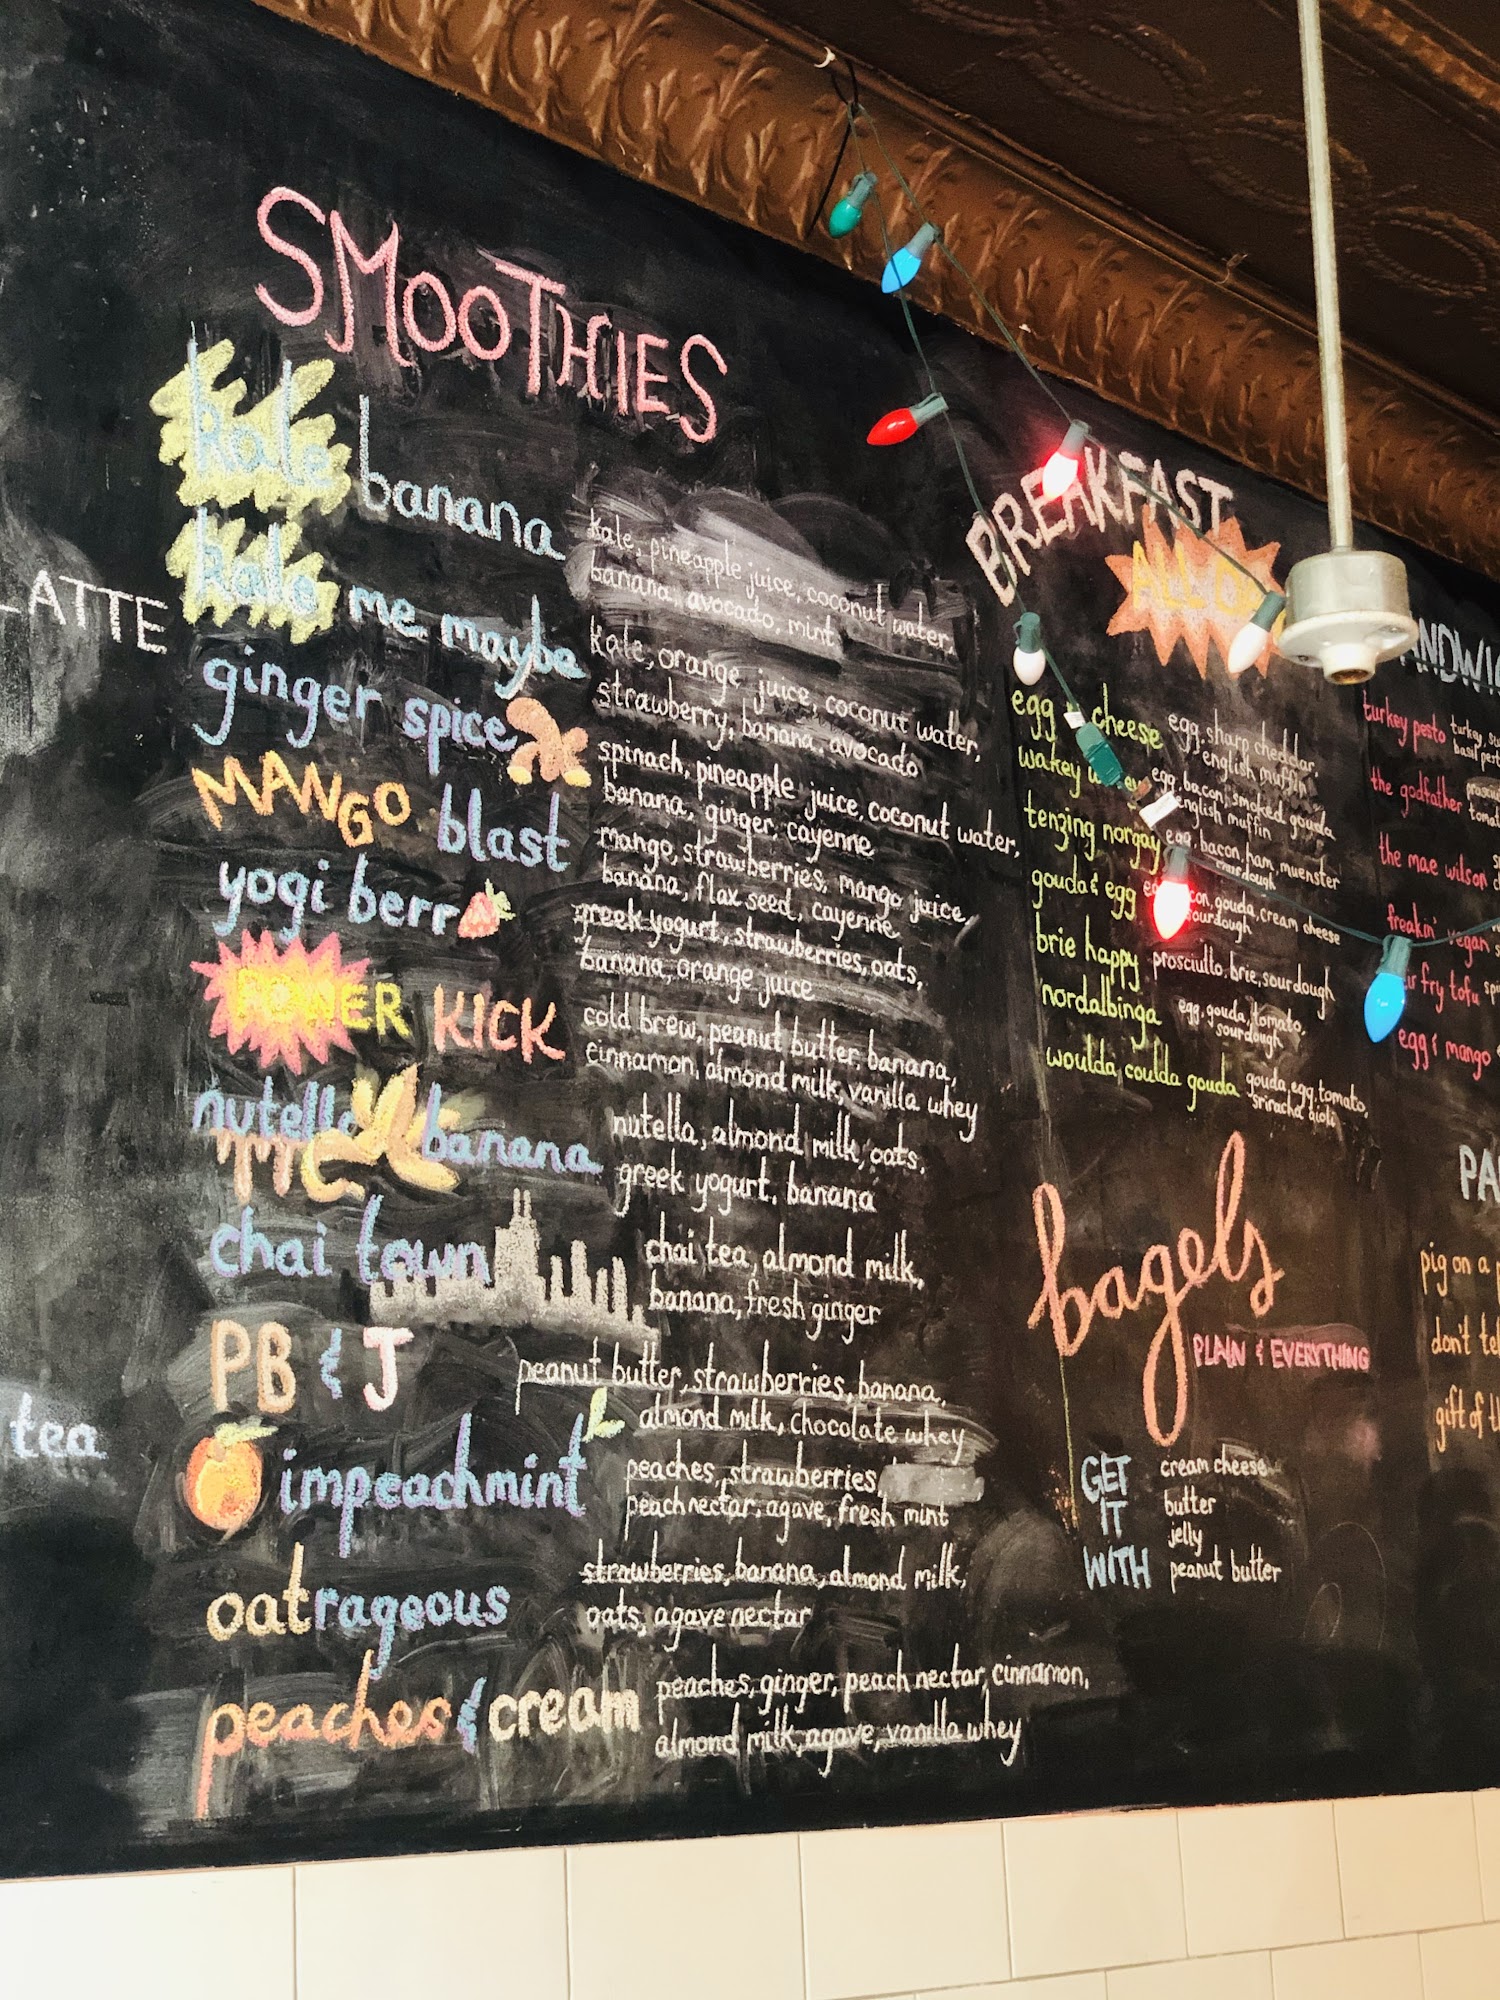 LATTE
tea
SMOOTHIES
kale banana
kale, pineapple juice, coconut water,
banana, avocado, mint
kale me maybe
kale, orange juice, coconut water,
strawberry, banana, avocado
ginger spice
spinach, pineapple juice, coconut water,
banana, ginger, cayenne
MANGO blast
mango, strawberries, mango juice,
banana, flax seed, cayenne
yogi berr
greek yogurt, strawberries, oats,
banana, orange juice
POWER KICK
cold brew, peanut butter, banana,
cinnamon, almond milk, vanilla whey
nutella banana
nutella, almond milk, oats,
greek yogurt, banana
chai town
chai tea, almond milk,
banana, fresh ginger
PB & J
peanut butter, strawberries, banana,
almond milk, chocolate whey
impeachmint
peaches, strawberries,
peach nectar, agave, fresh mint
oatrageous
strawberries, banana, almond milk,
oats, agave nectar
peaches & cream
peaches, ginger, peach nectar, cinnamon,
almond milk, agave, vanilla whey
BREAKFAST
ALL
egg & cheese
egg, sharp cheddar,
english muffin
wakey
egg, bacon, smoked gouda
english muffin
tenzing norgay
egg, bacon, ham, muenster
sourdough
gouda & egg
gouda, cream cheese
sourdough
brie happy
prosciutto, brie, sourdough
nordalbinga
egg, gouda, tomato,
sourdough
woulda, coulda gouda
gouda, egg, tomato,
sriracha aioli
bagels
PLAIN & EVERYTHING
GET
IT
WITH
cream cheese
butter
jelly
peanut butter
turkey pesto
turkey,
the godfather
the mae wilson
freakin' vegan
fry tofu
egg & mango
pig on a
don't
gift of